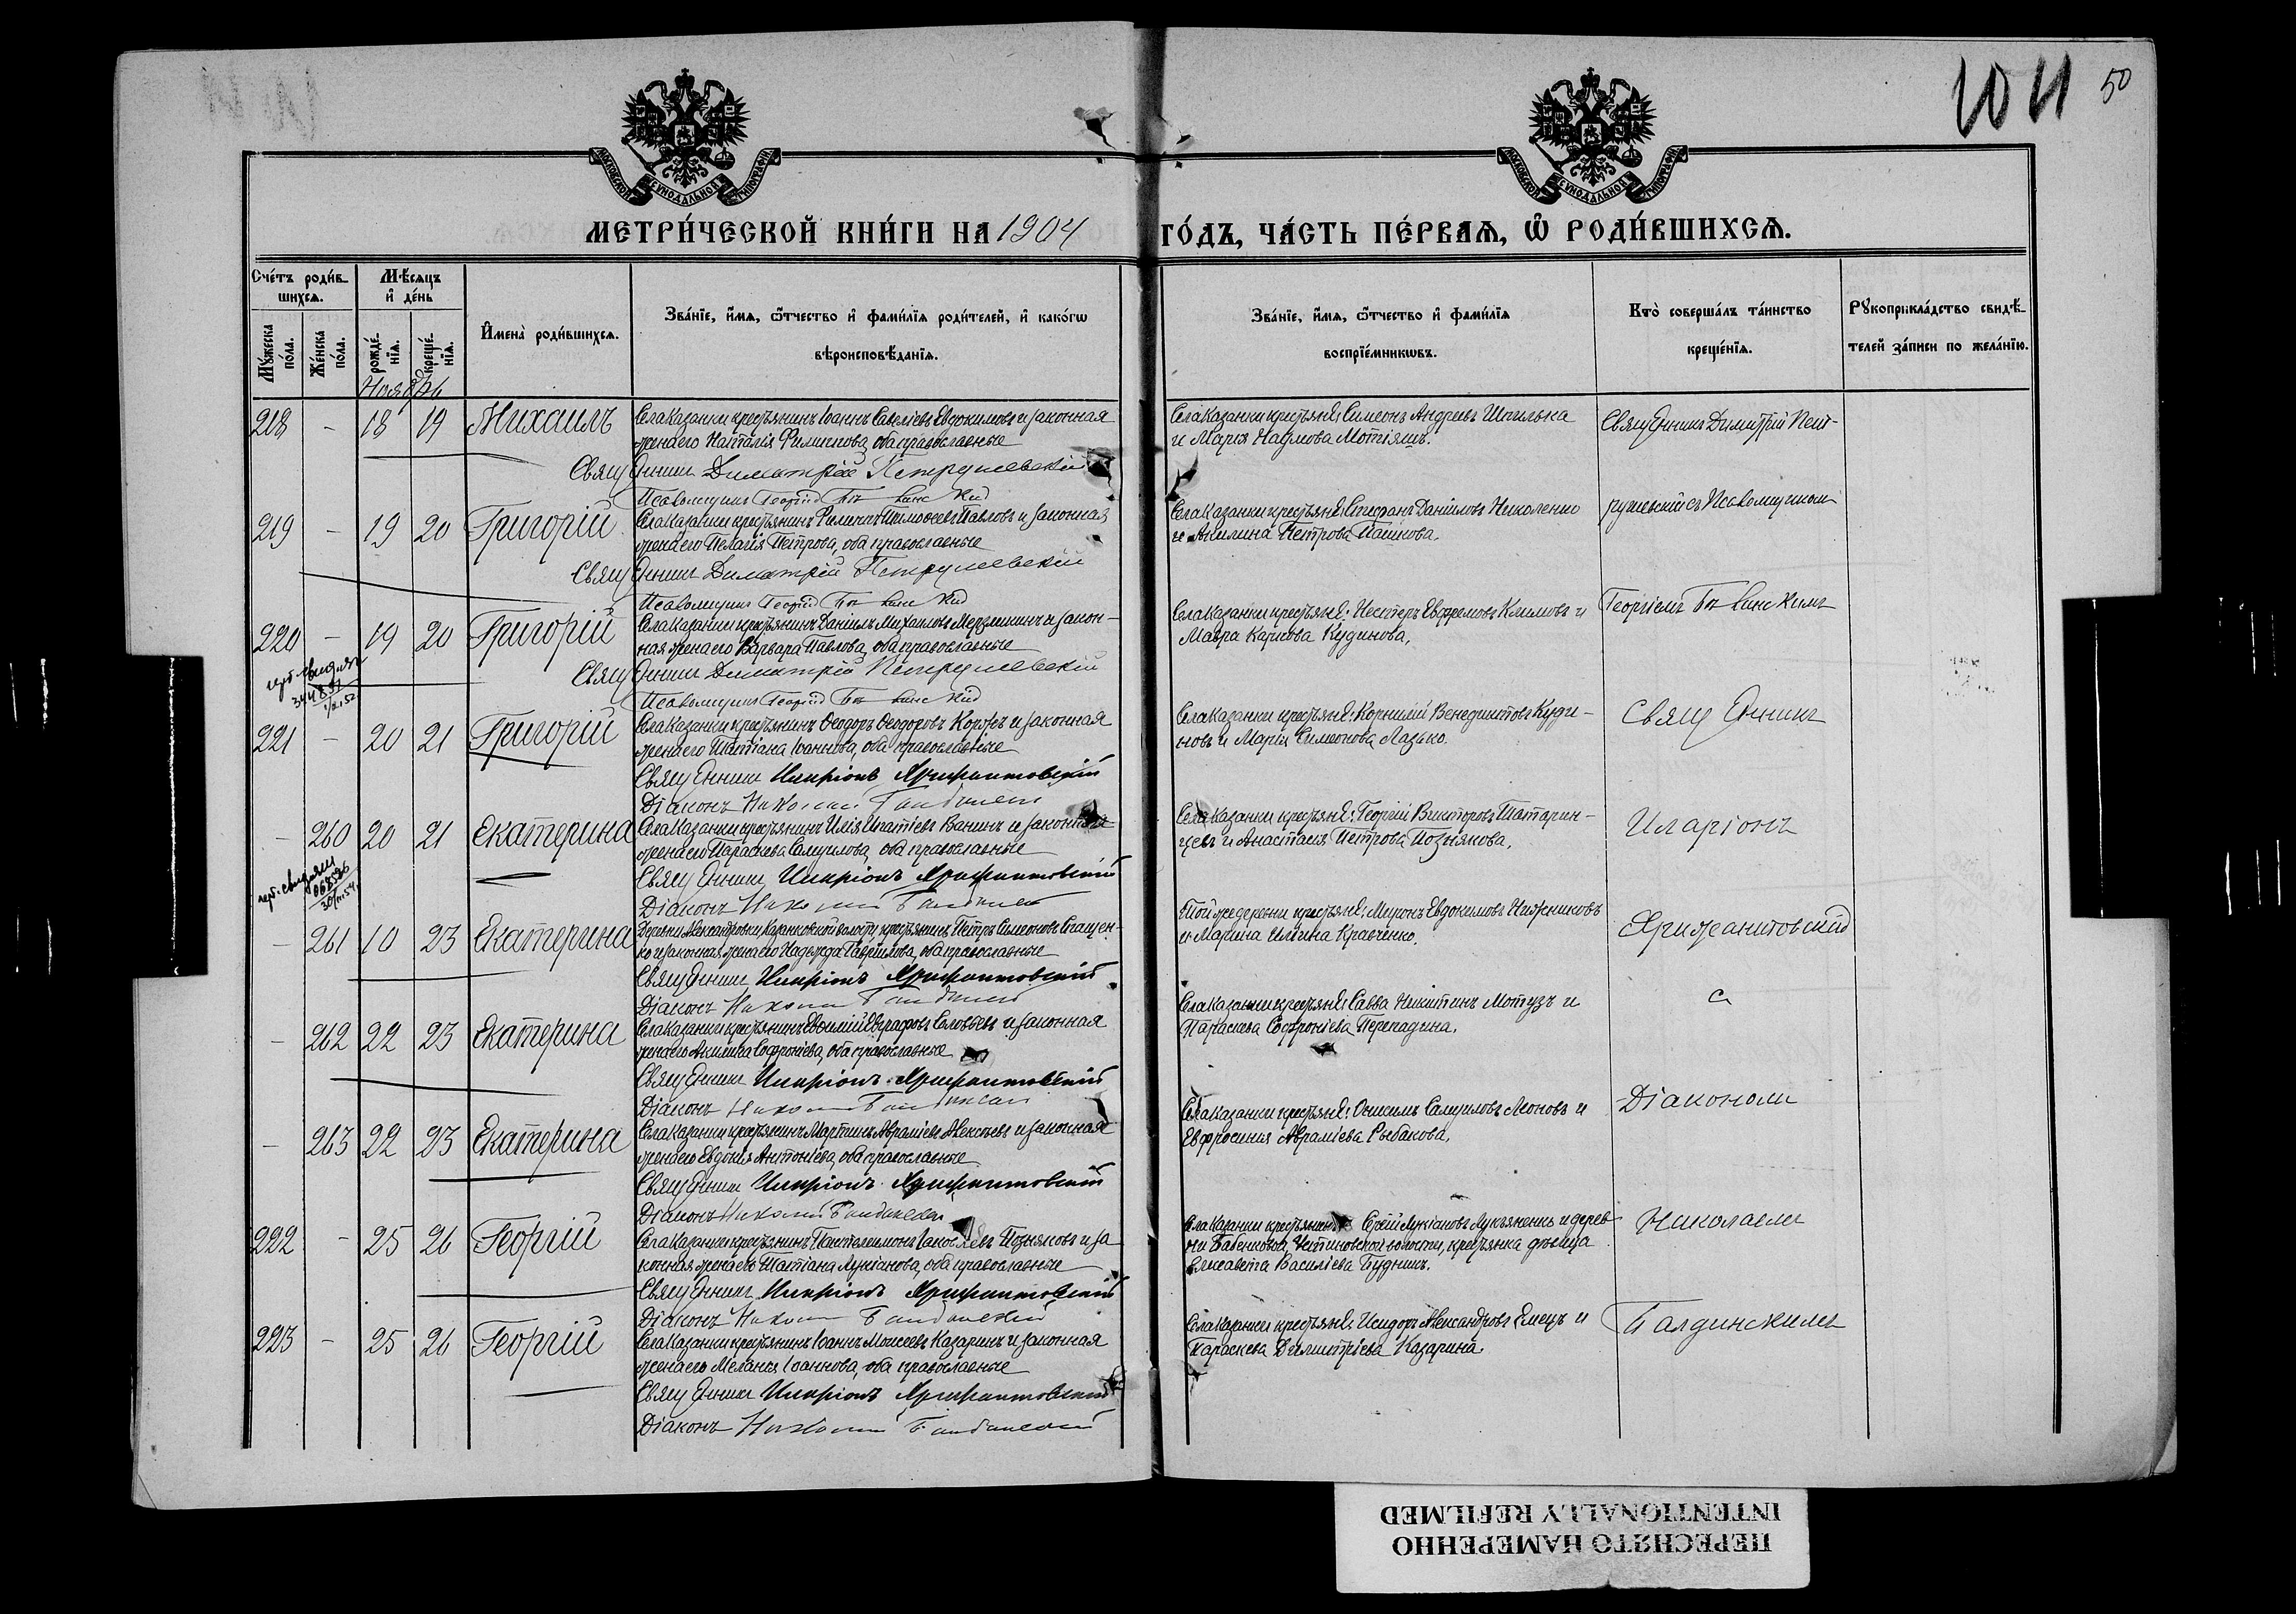 1011 50
МОСКОВСКОЙ СѴНОДАЛЬНОЙ ТИПОГРАФІИ
МОСКОВСКОЙ СѴНОДАЛЬНОЙ ТИПОГРАФІИ
МЕТРИ́ЧЕСКОЙ КНИ́ГИ НА 1904 ГО́ДЪ, ЧА́СТЬ ПЕ́РВАѦ, Ѡ҆ РОДИ́ВШИХСѦ.
Сче́тъ роди́в-
шихсѧ.
Мꙋ́жеска по́ла.
Же́нска по́ла.
Мѣ́сѧцъ
и҆ де́нь
рожде́-нїѧ.
креще́-нїѧ.
И҆мена̀ роди́вшихсѧ.
Зва́нїе, и҆́мѧ, ѻ҆́тчество и҆ фами́лїѧ роди́телей, и҆ како́гѡ
вѣроисповѣ́данїѧ.
Зва́нїе, и҆́мѧ, ѻ҆́тчество и҆ фами́лїѧ
воспрїе́мникѡвъ.
Кто̀ соверша́лъ та́инство
креще́нїѧ.
Рꙋкоприкла́дство свидѣ́-
телей за́писи по жела́нїю.
Ноября
218 - 18 19 Михаилъ
Села Казанки крестьянинъ Іоаннъ Савеліевъ Евдокимовъ и законная
жена его Наталія Филиппова, оба православные
Священникъ Димитрій Петрушевскій
Псаломщикъ Георгій
Села Казанки крестьяне: Симеонъ Андреевъ Шпилька
и Марія Наумова Мотіяшъ.
Священникъ Димитрій Пет-
219 - 19 20 Григорій
Села Казанки крестьянинъ Филиппъ Тимоѳеевъ Павловъ и законная
жена его Пелагія Петрова, оба православные
Священникъ Димитрій Петрушевскій
Псаломщикъ Георгій
Села Казанки крестьяне: Стефанъ Даніиловъ Николенко
и Акилина Петрова Пашкова.
рушевскій съ Псаломщикомъ
220 - 19 20 Григорій
Села Казанки крестьянинъ Даніилъ Михаиловъ Мерзликинъ и закон-
ная жена его Варвара Павлова, оба православные
Священникъ Димитрій Петрушевскій
Псаломщикъ Георгій
Села Казанки крестьяне: Несторъ Евфремовъ Климовъ и
Мавра Карпова Кудинова.
Георгіемъ
221 - 20 21 Григорій
Села Казанки крестьянинъ Ѳеодоръ Ѳеодоровъ Коржъ и законная
жена его Татіана Іоаннова, оба православные
Священникъ Иларіонъ Хрисанѳовскій
Діаконъ Николай
Села Казанки крестьяне: Корнилій Венедиктовъ Куди-
новъ и Марія Симеонова Лазько.
Священникъ
- 260 20 21 Екатерина
Села Казанки крестьянинъ Илія Игнатіевъ Ванинъ и законная
жена его Параскева Самуилова, оба православные
Священникъ Иларіонъ
Діаконъ Николай
Села Казанки крестьяне: Георгій Викторовъ Татарин-
цевъ и Анастасія Петрова Познякова.
Иларіонъ
- 261 10 23 Екатерина
Деревни Александровки Казанковской волости, крестьянинъ Петръ Симеоновъ Слащен-
ко и законная жена его Надежда Гавріилова, оба православные
Священникъ Иларіонъ
Діаконъ Николай
Той же деревни крестьяне: Миронъ Евдокимовъ Нажниковъ
и Марина Иліина Кравченко.
- 262 22 23 Екатерина
Села Казанки крестьянинъ Евѳимій Евграфовъ Соловьевъ и законная
жена его Акилина Софроніева, оба православные
Священникъ Иларіонъ
Діаконъ Николай
Села Казанки крестьяне: Савва Никитинъ Мотузъ и
Параскева Софроніева Перепадина.
с
- 263 22 23 Екатерина
Села Казанки крестьянинъ Мартинъ Авраміевъ Алексѣевъ и законная
жена его Евдокія Антоніева, оба православные
Священникъ Иларіонъ
Діаконъ Николай
Села Казанки крестьяне: Онисимъ Самуиловъ Леоновъ и
Евфросинія Авраміева Рыбакова.
Діакономъ
222 - 25 26 Георгій
Села Казанки крестьянинъ Пантелеимонъ Іаковлевъ Позняковъ и за
конная жена его Татіана Лукіанова, оба православные
Священникъ Иларіонъ
Діаконъ Николай
Села Казанки крестьянинъ Сергій Лукіановъ Лукьяненко и дерев-
ни Бабенковой, Устиновской волости, крестьянка дѣвица
Елисавета Василіева Будникъ.
Николаемъ
223 - 25 26 Георгій
Села Казанки крестьянинъ Іоаннъ Моисеевъ Казаринъ и законная
жена его Меланія Іоаннова, оба православные
Священникъ Иларіонъ
Діаконъ Николай
Села Казанки крестьяне: Исидоръ Александровъ Емецъ и
Параскева Димитріева Казарина.
ПЕРЕСНЯТО НАМЕРЕННО
INTENTIONALLY REFILMED